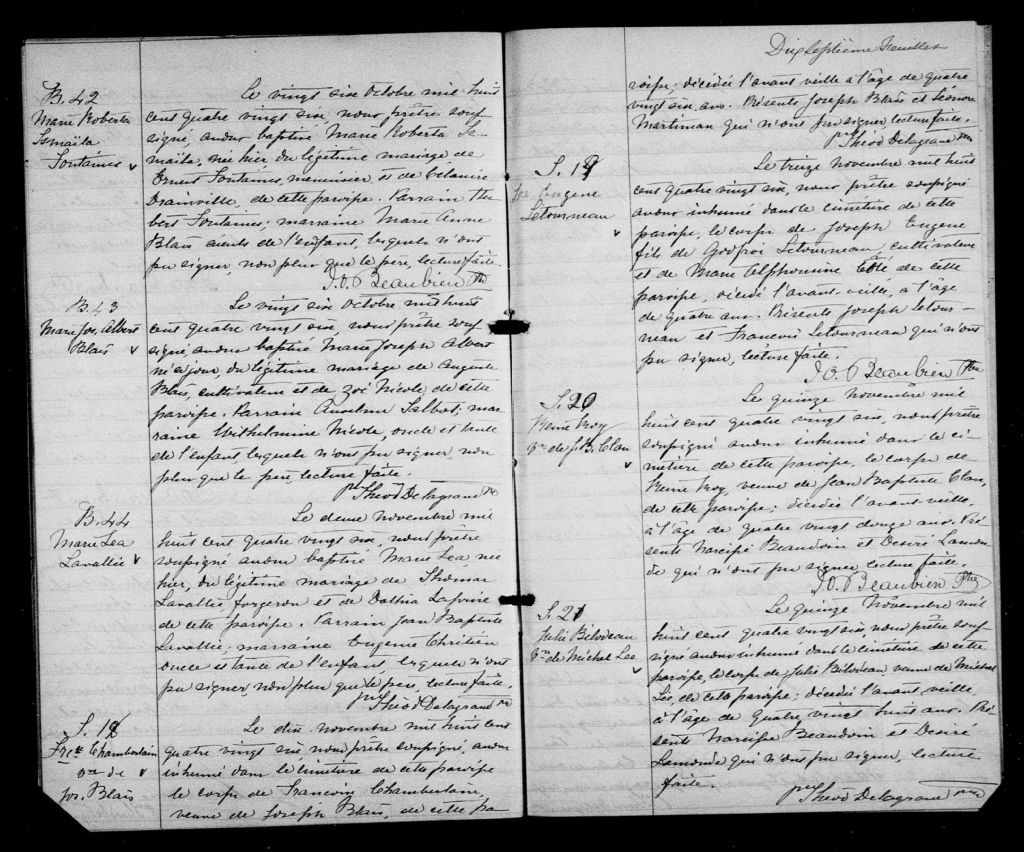 B. 42
Marie Roberta
Ismaïla
Fontaines
Le vingt six Octobre mil huit
cent quatre vingt six, nous prêtre souf-
signé, avons baptisé Marie Roberta Is-
maïla, née hier du légitime mariage de
Ernest Fontaines, menuisier et de Célanire
Drainville, de cette paroisse. Parrain
bert Fontaines; marraine Marie Anne
Blais de l'enfant, lesquels n'ont
pu signer, non plus que le père, lecture faite.
J. O. Beaubien Ptre
B. 43
Marie Jos. Albert
Blais
Le vingt six Octobre mil huit
cent quatre vingt six, nous prêtre souf-
signé, avons baptisé Marie Joseph Albert
né ce jour, du légitime mariage de Auguste
Blais, cultivateur et de Zoé Nicole de cette
paroisse. Parrain Anselme Talbot; mar-
raine Wilhelmine Nicole, oncle et tante
de l'enfant lesquels n'ont pu signer, non
plus que le père, lecture faite.
Théod Delagrave ptre
B. 44
Marie Lea
Lavallée
Le deux novembre mil
huit cent quatre vingt six, nous prêtre
soussigné avons baptisé Marie Lea, née
hier, du légitime mariage de Thomas
Lavallée forgeron et de
de cette paroisse. Parrain Jean Baptiste
Lavallée; marraine Eugenie Chrétien
oncle et tante de l'enfant lesquels n'ont
pu signer non plus que le père, lecture faite.
Théod Delagrave ptre
S. 18
Frse Chamberlain
Vve de
Jos. Blais
Le dix novembre mil huit cent
quatre vingt six, nous prêtre soussigné, avons
inhumé dans le cimetière de cette paroisse
le corps de Francoise Chamberlain,
veuve de Joseph Blais, de cette pa
Dix Septième Feuillet
roisse; décédée l'avant veille à l'âge de quatre
vingt six ans. Présents Joseph Blais et Léonore
Martineau qui n'ont pu signer lecture faite.
Théod Delagrave ptre
S. 19
Jos. Eugene
Letourneau
Le treize Novembre mil huit
cent quatre vingt six, nous prêtre soussigné
avons inhumé dans le cimetière de cette
paroisse, le corps de Joseph Eugene
fils de Godfroi Letourneau, cultivateur
et de Marie Alphonsine Côté de cette
paroisse, décédé l'avant-veille, à l'âge
de quatre ans. Présents Joseph Letour-
neau et Francois Letourneau qui n'ont
pu signer, lecture faite.
J. O. Beaubien Ptre
S. 20
Roy
Vve de J. B. Clau
Le quinze Novembre mil
huit cent quatre vingt six, nous prêtre
soussigné avons inhumé dans le ci-
metière de cette paroisse, le corps de
Roy, veuve de Jean Baptiste Clau,
de cette paroisse; décédée l'avant veille
à l'âge de quatre vingt douze ans. Pré
sents Narcisse Beaudoin et Desiré Lamon
de qui n'ont pu signer lecture faite.
J. O. Beaubien Ptre
S. 21
Julie Bilodeau
Vve de Michel Lee
Le quinze Novembre mil
huit cent quatre vingt six, nous prêtre souf
signé avons inhumé dans le cimetière de cette
paroisse, le corps de Julie Bilodeau, veuve de Michel
Lee, de cette paroisse; décédée l'avant veille
à l'âge de quatre vingt huit ans. Pré-
sents Narcisse Beaudoin et Desiré
Lamonde qui n'ont pu signer, lecture
faite.
Théod Delagrave ptre